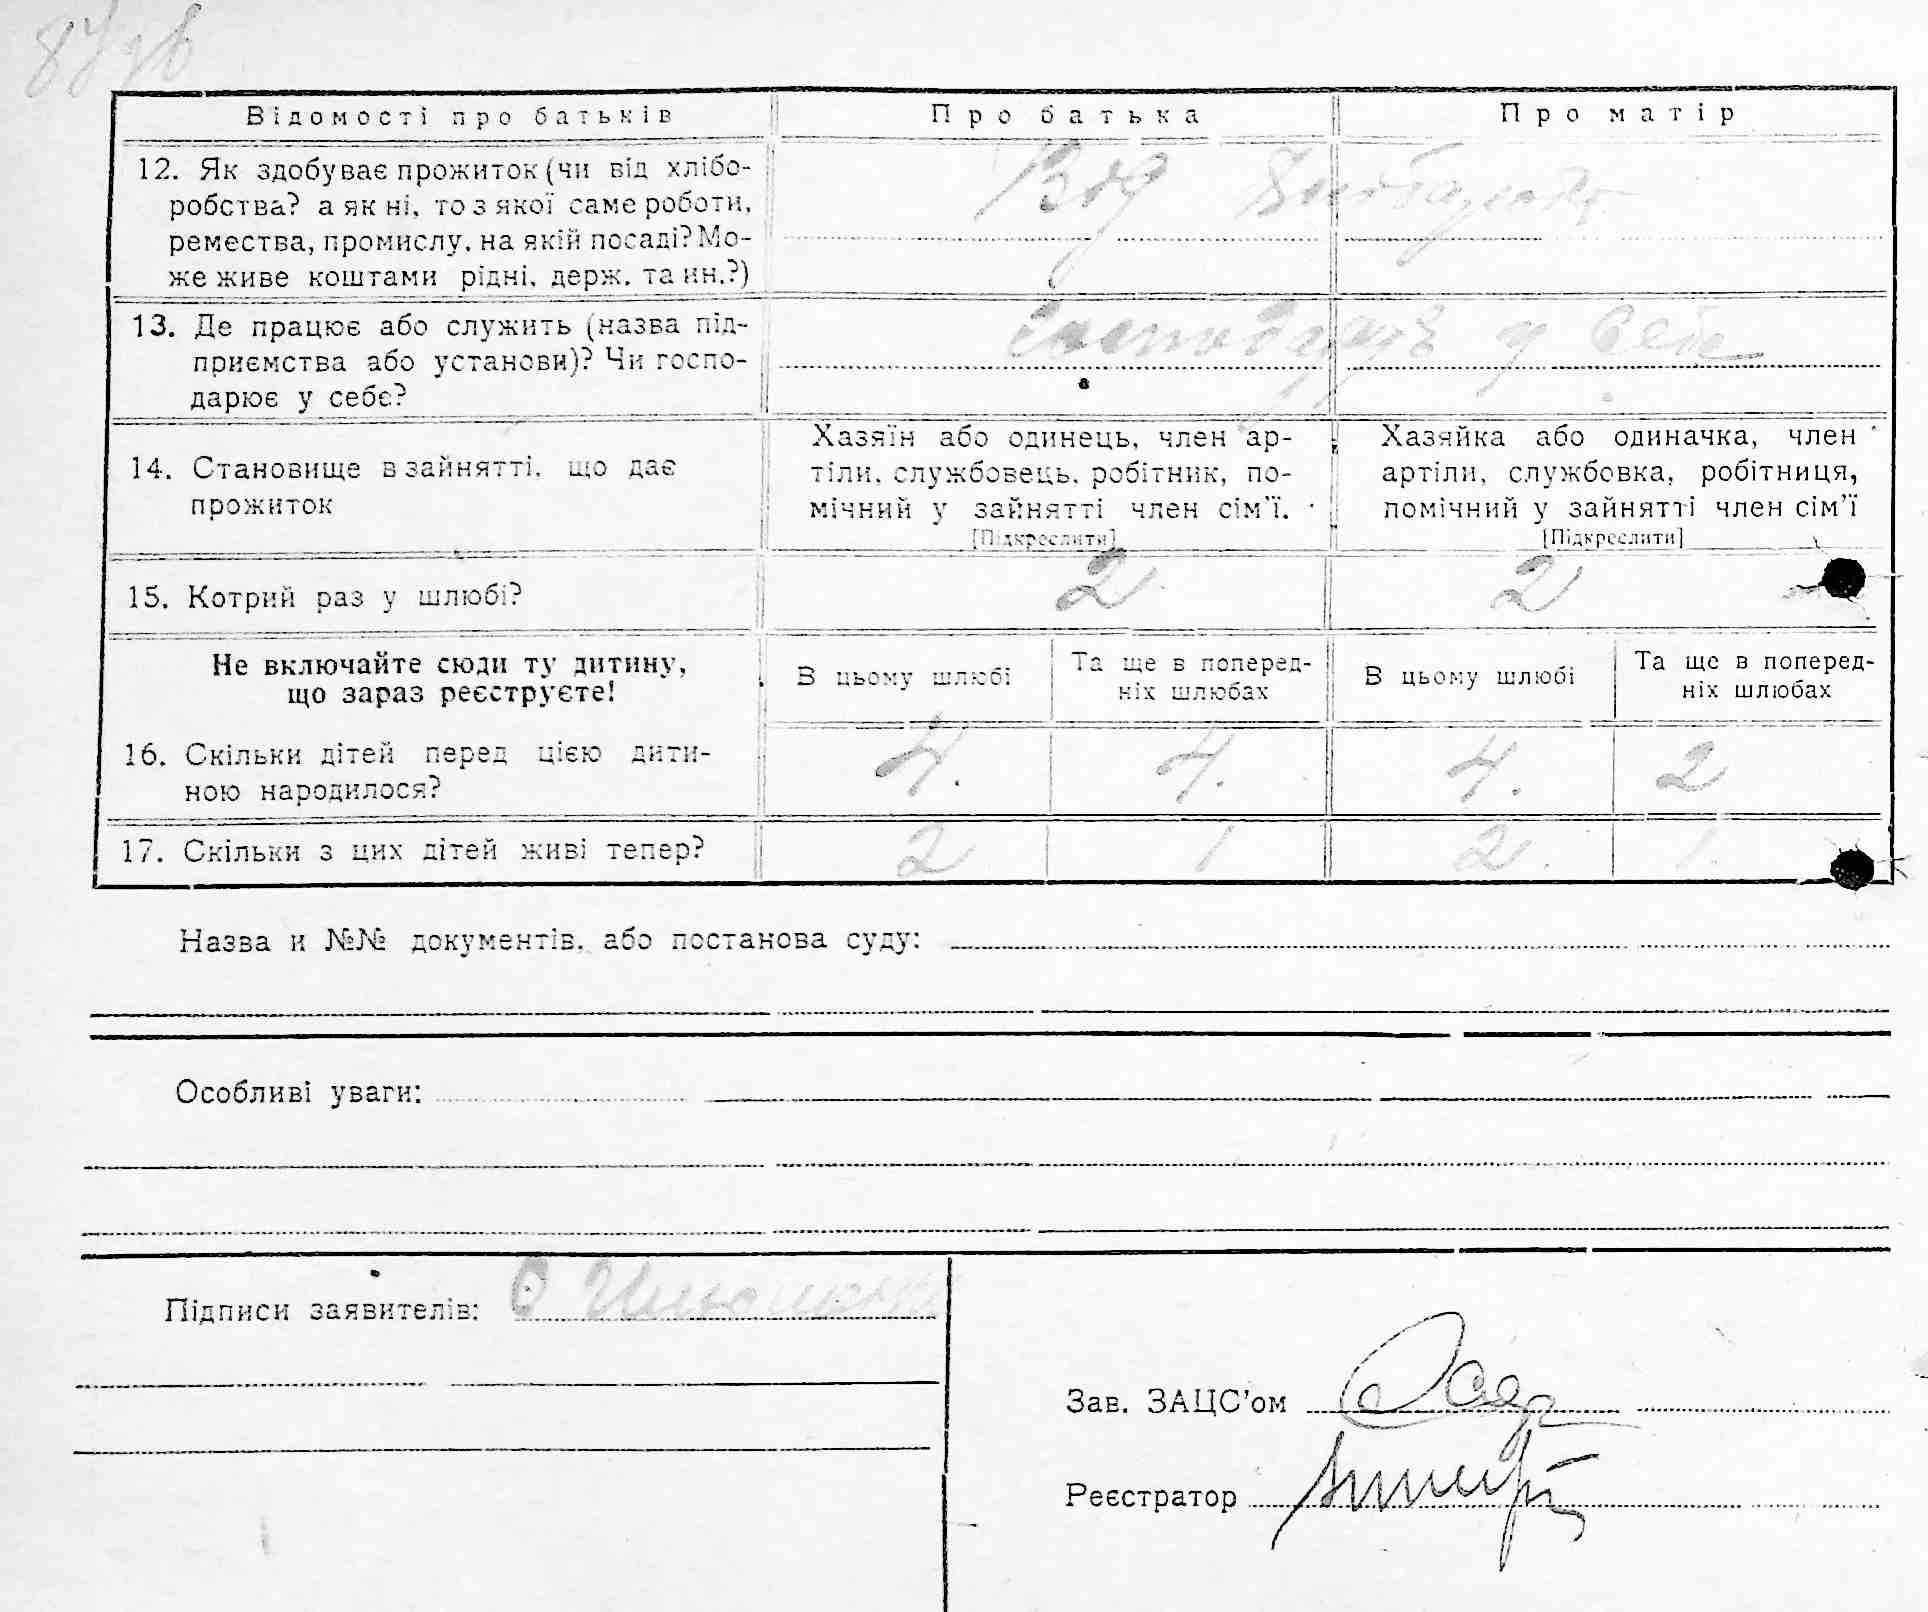 87зв
Відомості про батьків Про батька Про матір
12. Як здобуває прожиток (чи від хлібо-
робства? а як ні, то з якої саме роботи,
ремества, промислу, на якій посаді? Мо-
же живе коштами рідні, держ. та ин.?)
Від
13. Де працює або служить (назва під-
приємства або установи)? Чи госпо-
дарює у себе?
у себе
14. Становище в зайнятті, що дає
прожиток
Хазяїн або одинець, член ар-
тіли, службовець, робітник, по-
мічний у зайнятті член сім'ї.
[Підкреслити]
Хазяйка або одиначка, член
артіли, службовка, робітниця,
помічний у зайнятті член сім'ї
[Підкреслити]
15. Котрий раз у шлюбі? 2 2
Не включайте сюди ту дитину,
що зараз реєструєте!
В цьому шлюбі
Та ще в поперед-
ніх шлюбах
В цьому шлюбі
Та ще в поперед-
ніх шлюбах
16. Скільки дітей перед цією дити-
ною народилося?
4. 4. 4. 2
17. Скільки з цих дітей живі тепер? 2 1 2. 1.
Назва и №№ документів, або постанова суду:
Особливі уваги:
Підписи заявителів:
Зав. ЗАЦС'ом
Реєстратор